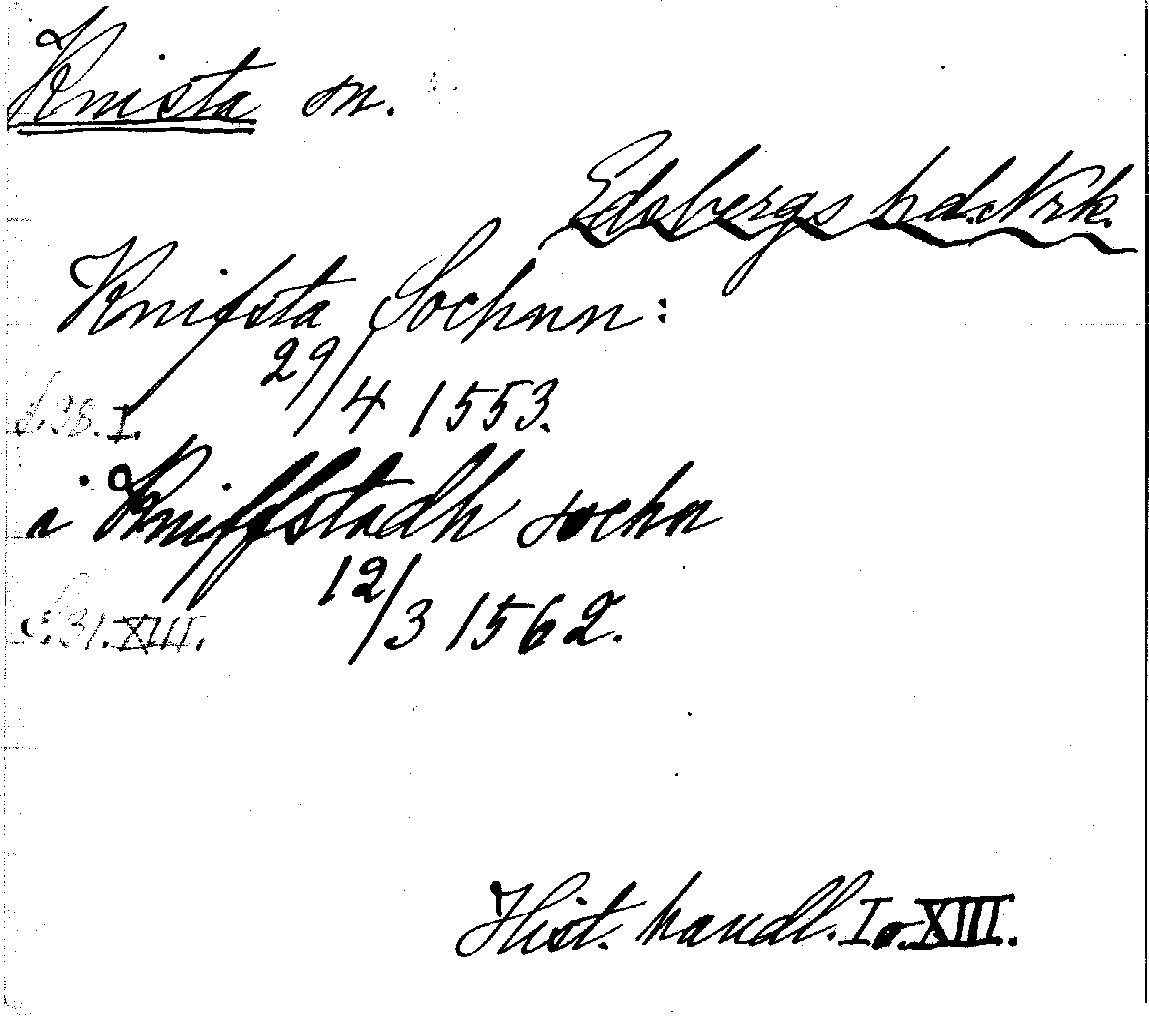 Knista sn.
Edsbergs hd. Nrk.
Knifsta Sochnn:
29/4 1553.
s. 98. I.
i Kniffstadh sochn
12/3 1562.
S. 31. XIII.
Hist. handl. I o. XIII.